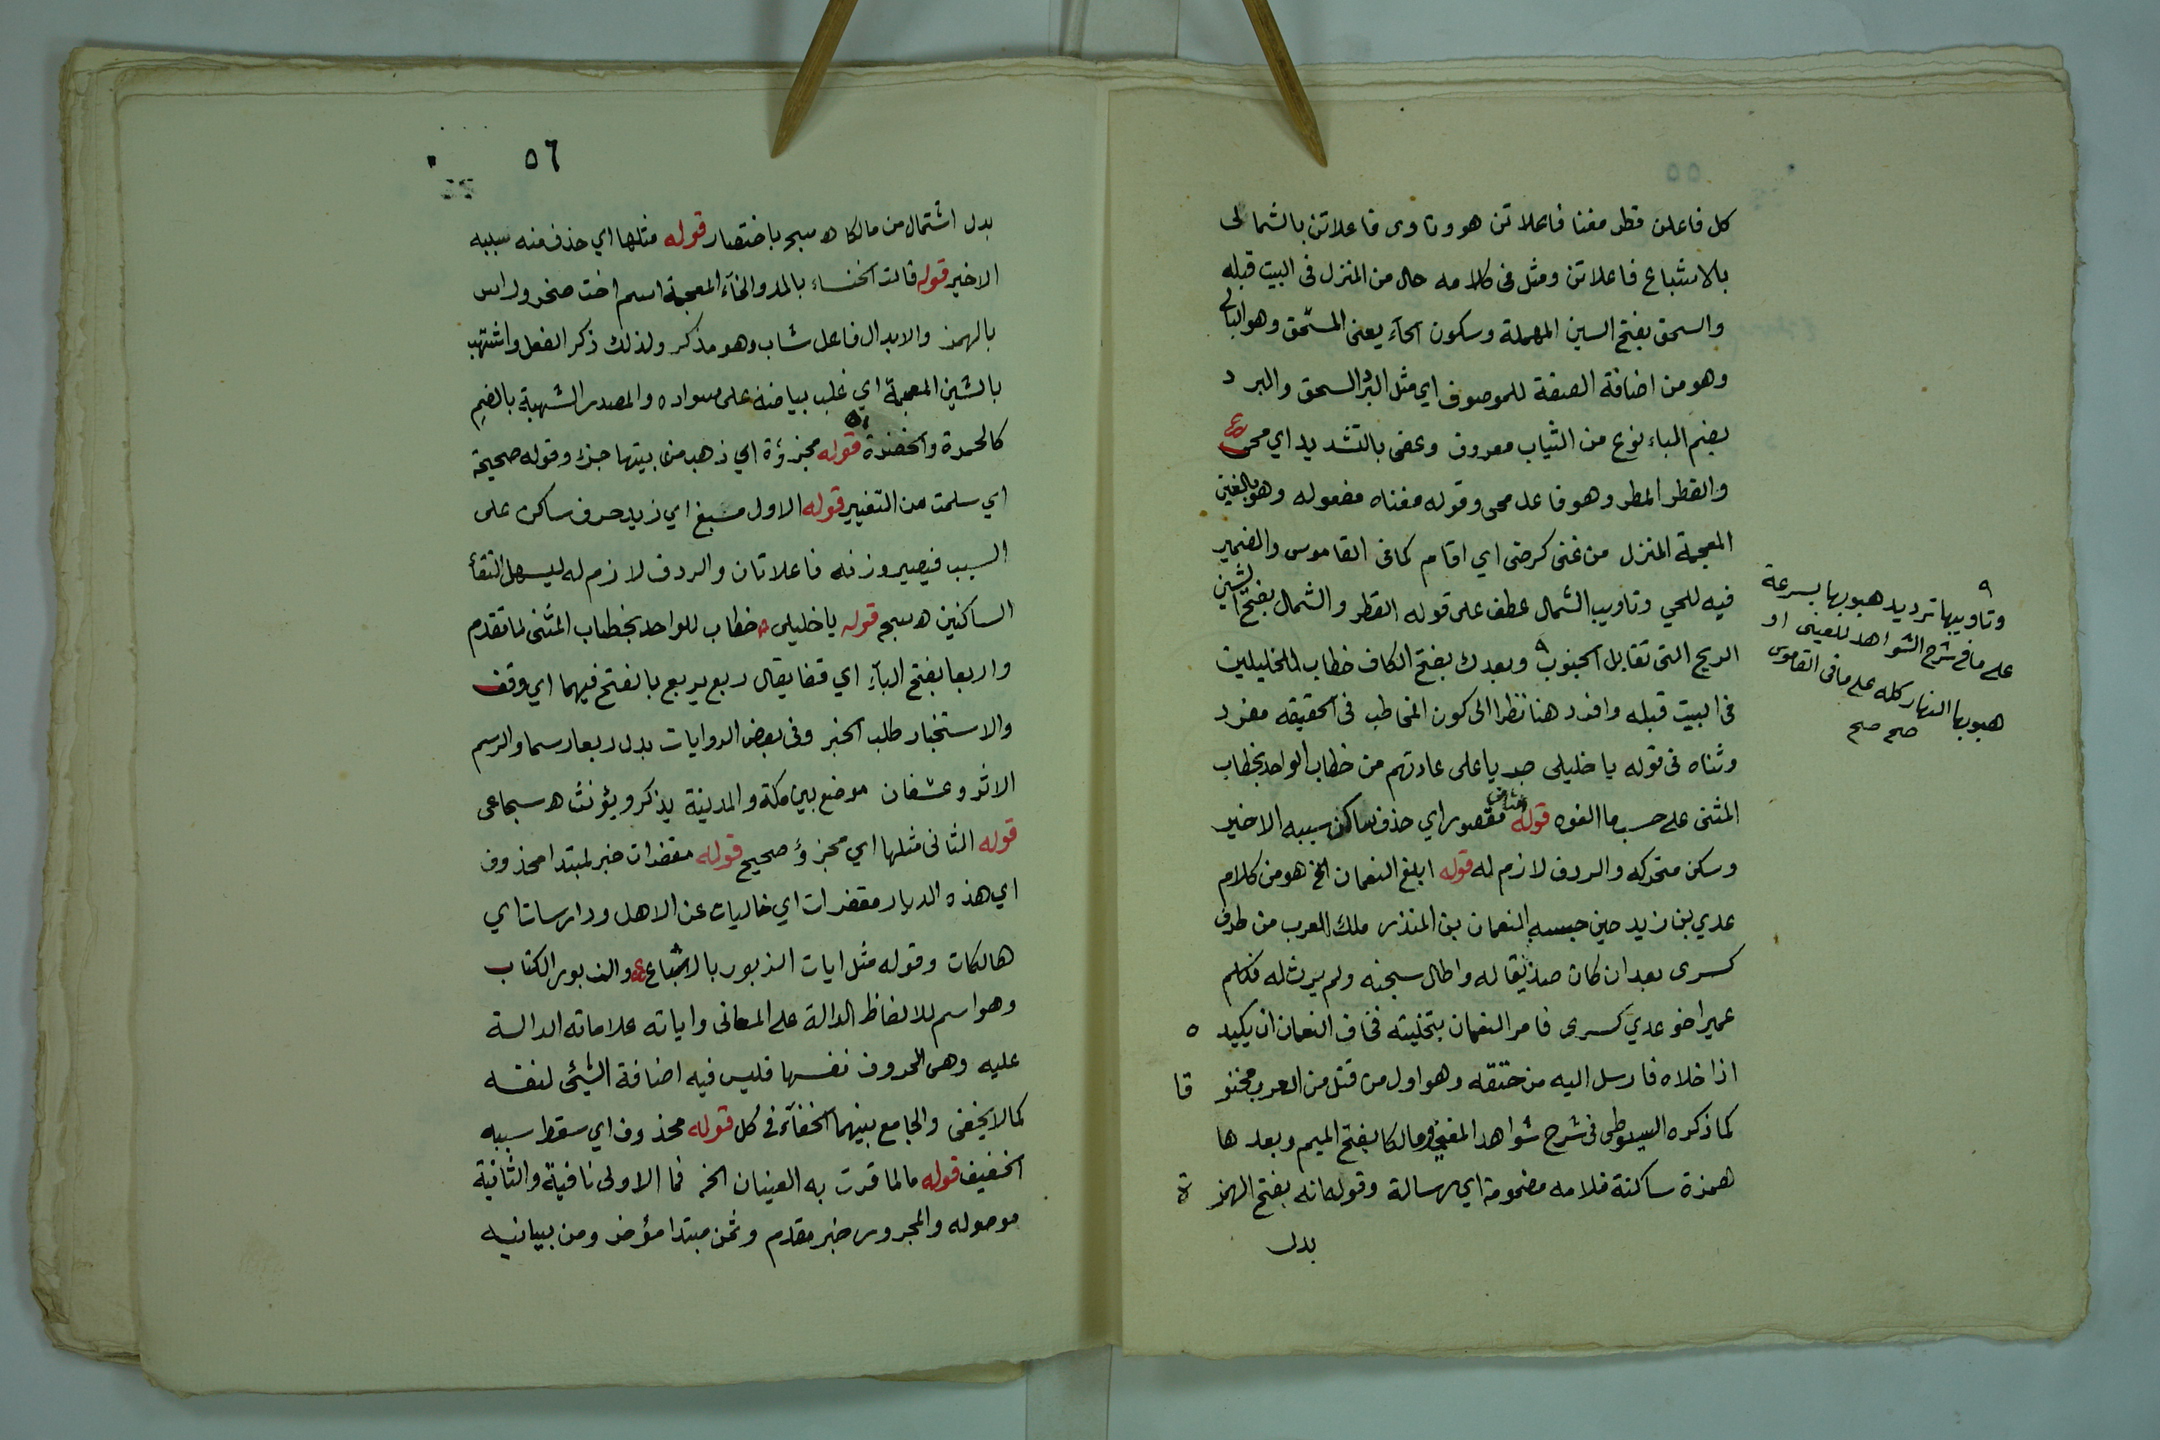 كل فاعلن قطر مغنا فاعلاتن هو وتاوى فاعلاتن بالشمالى
بالاشباع فاعلاتن ومثل فى كلامه حال من المنزل فى البيت قبله
والسحق بفتح السين المهملة وسكون الحآء يعنى المنسحق وهو البالى
وهو من اضافة الصفة للموصوف اي مثل البرد السحق والبرد
بضم الباء نوع من الثياب معروف وعفى بالتشديد اي محى
والقطر المطر وهو فاعل محى وقوله مغناه مفعوله وهو بالغين
المعجمة المنزل من غنى كرضى اي اقام كما فى القاموس والضمير
فيه للحي وتاويب الشمال عطف على قوله القطر والشمال بفتح الشين
الريح التى تقابل الجنوب ٩ وبعدك بفتح الكاف خطاب للخليلين
فى البيت قبله وافرد هنا نظرا الى كون المخاطب فى الحقيقه مفرد
وثناه فى قوله يا خليلى جريا على عادتهم من خطاب الواحد بخطاب
المثنى على حسب ما الفوه قوله مقصور اي حذف ساكن سببه الاخير
وسكن متحركه والردف لازم له قوله ابلغ النعمان الخ هو من كلام
عدي بن زيد حين حبسه النعمان بن المنذر ملك العرب من طرف
كسرى بعد ان كان صديقا له واطال سجنه ولم يرث له فكلم
عمير اخو عدي كسرى فامر النعمان بتخليته فخاف النعمان ان يكيده
اذا خلاه فارسل اليه من خنقه وهو اول من قتل من العرب مخنوقا
كما ذكره السيوطى فى شرح شواهد المغنى ومالكا بفتح الميم وبعدها
همزة ساكنة فلامه مضمومة اي رسالة وقوله انه بفتح الهمزة
بدل
٩
وتاويبها ترديد هبوبها بسرعة
على ما فى شرح الشواهد للعينى او
هبوبها النهار كله على ما فى القاموس
صح صح
٥٦
بدل اشتمال من مالكا اه سجـ باختصار قوله مثلها اي حذف منه سببه
الاخير قوله قالت الخنساء بالمد والخآء المعجمة اسم اخت صخر ولراس
بالهمز والابدال فاعل شاب وهو مذكر ولذلك ذكر الفعل واشتهب
بالشين المعجمة اي غلب بياضه على سواده والمصدر الشهبة بالضم
كالحمرة والخضرة قوله مجزؤة اي ذهب من بيتها جزء وقوله صحيحة
اي سلمت من التغيير قوله الاول مسبغ اي زيد حرف ساكن على
السبب فيصير وزنه فاعلاتان والردف لازم له ليسهل التقأ
الساكنين اه سجـ قوله يا خليلى خطاب للواحد بخطاب المثنى لما تقدم
واربعا بفتح البآء اي قفا يقال ربع يربع بالفتح فيهما اي وقف
والاستخبار طلب الخبر وفى بعض الروايات بدل ربعا رسما والرسم
الاثر وعسفان موضع بين مكة والمدينة يذكر ويؤنث اه سجاعى
قوله الثانى مثلها اي مجزؤ صحيح قوله مقفرات خبر لمبتدا محذوف
اي هذه الديار مقفرات اي خاليات عن الاهل ودارسات اي
هالكات وقوله مثل ايات الزبور بالاشباع والزبور الكتاب
وهو اسم للالفاظ الدالة على المعانى واياته علاماته الدالة
عليه وهى الحروف نفسها فليس فيه اضافة الشئ لنفسه
كما لا يخفى والجامع بينهما الخفآء فى كل قوله محذوف اي سقط سببه
الخفيف قوله ما لما قرت به العينان الخ فما الاولى نافية والثانية
موصوله والمجرور خبر مقدم وثمن مبتدا مؤخر ومن بيانيه